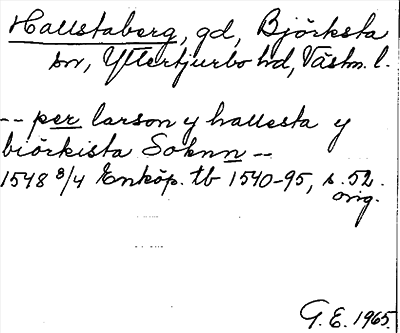 Hallstaberg, gd, Björksta
sn, Yttertjurbo hd, Västm. l.
-- per larson y hallesta y
biörkista Soknn --
1548 8/4 Enköp. tb 1540-95, s. 52.
orig.
G. E. 1965.